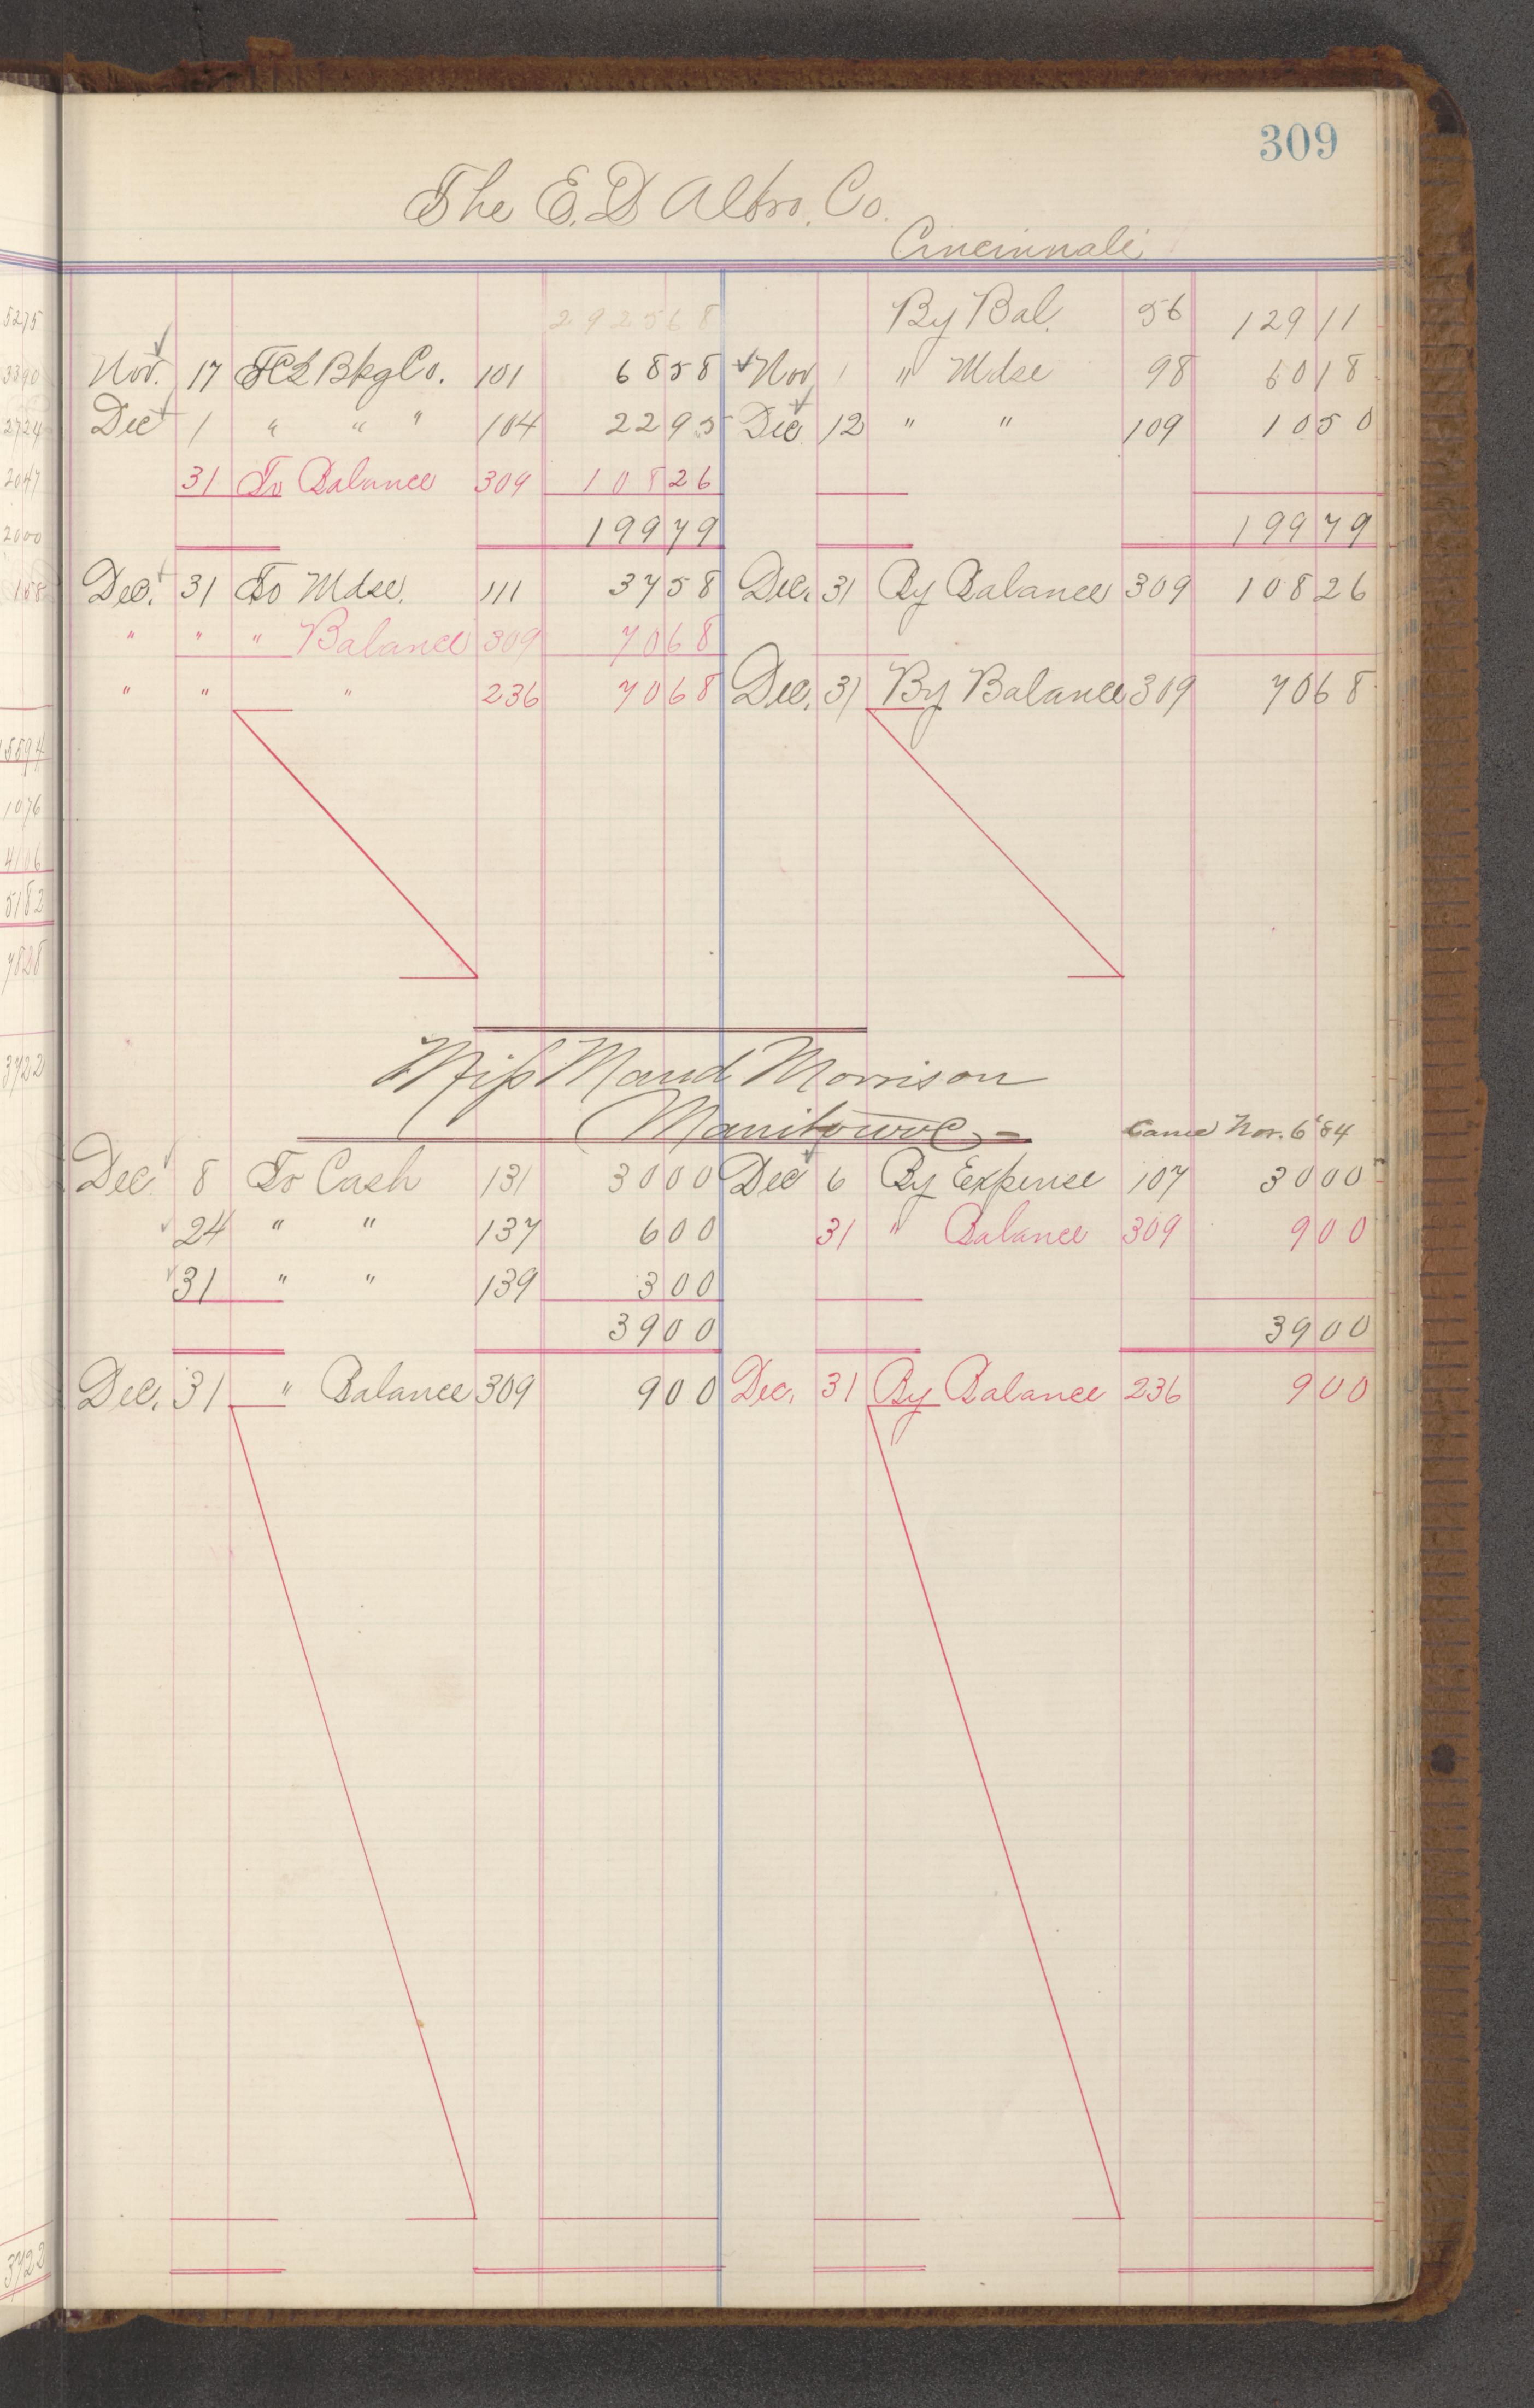 309
The E. D Albro. Co.
Cincinnati
292568 By Bal. 56 129 11
Nov. 17 Bkg Co. 101 68 58 Nov 1 " Mdse 98 60 18
Dec 1 " " " 104 22 95 Dec 12 " " 109 10 50
31 To Balance 309 108 26
199 79 199 79
Dec. 31 To Mdse. 111 37 58 Dec. 31 By Balance 309 108 26
" " " Balance 309 70 68
" " " 236 70 68 Dec. 31 By Balance 309 70 68
Miss Maud Morrison
Manitowoc Came Nov. 6 '84
Dec 8 To Cash 131 30 00 Dec 6 By Expense 107 30 00
24 " " 137 6 00 31 " Balance 309 9 00
31 " " 139 3 00
39 00 39 00
Dec. 31 " Balance 309 9 00 Dec. 31 By Balance 236 9 00